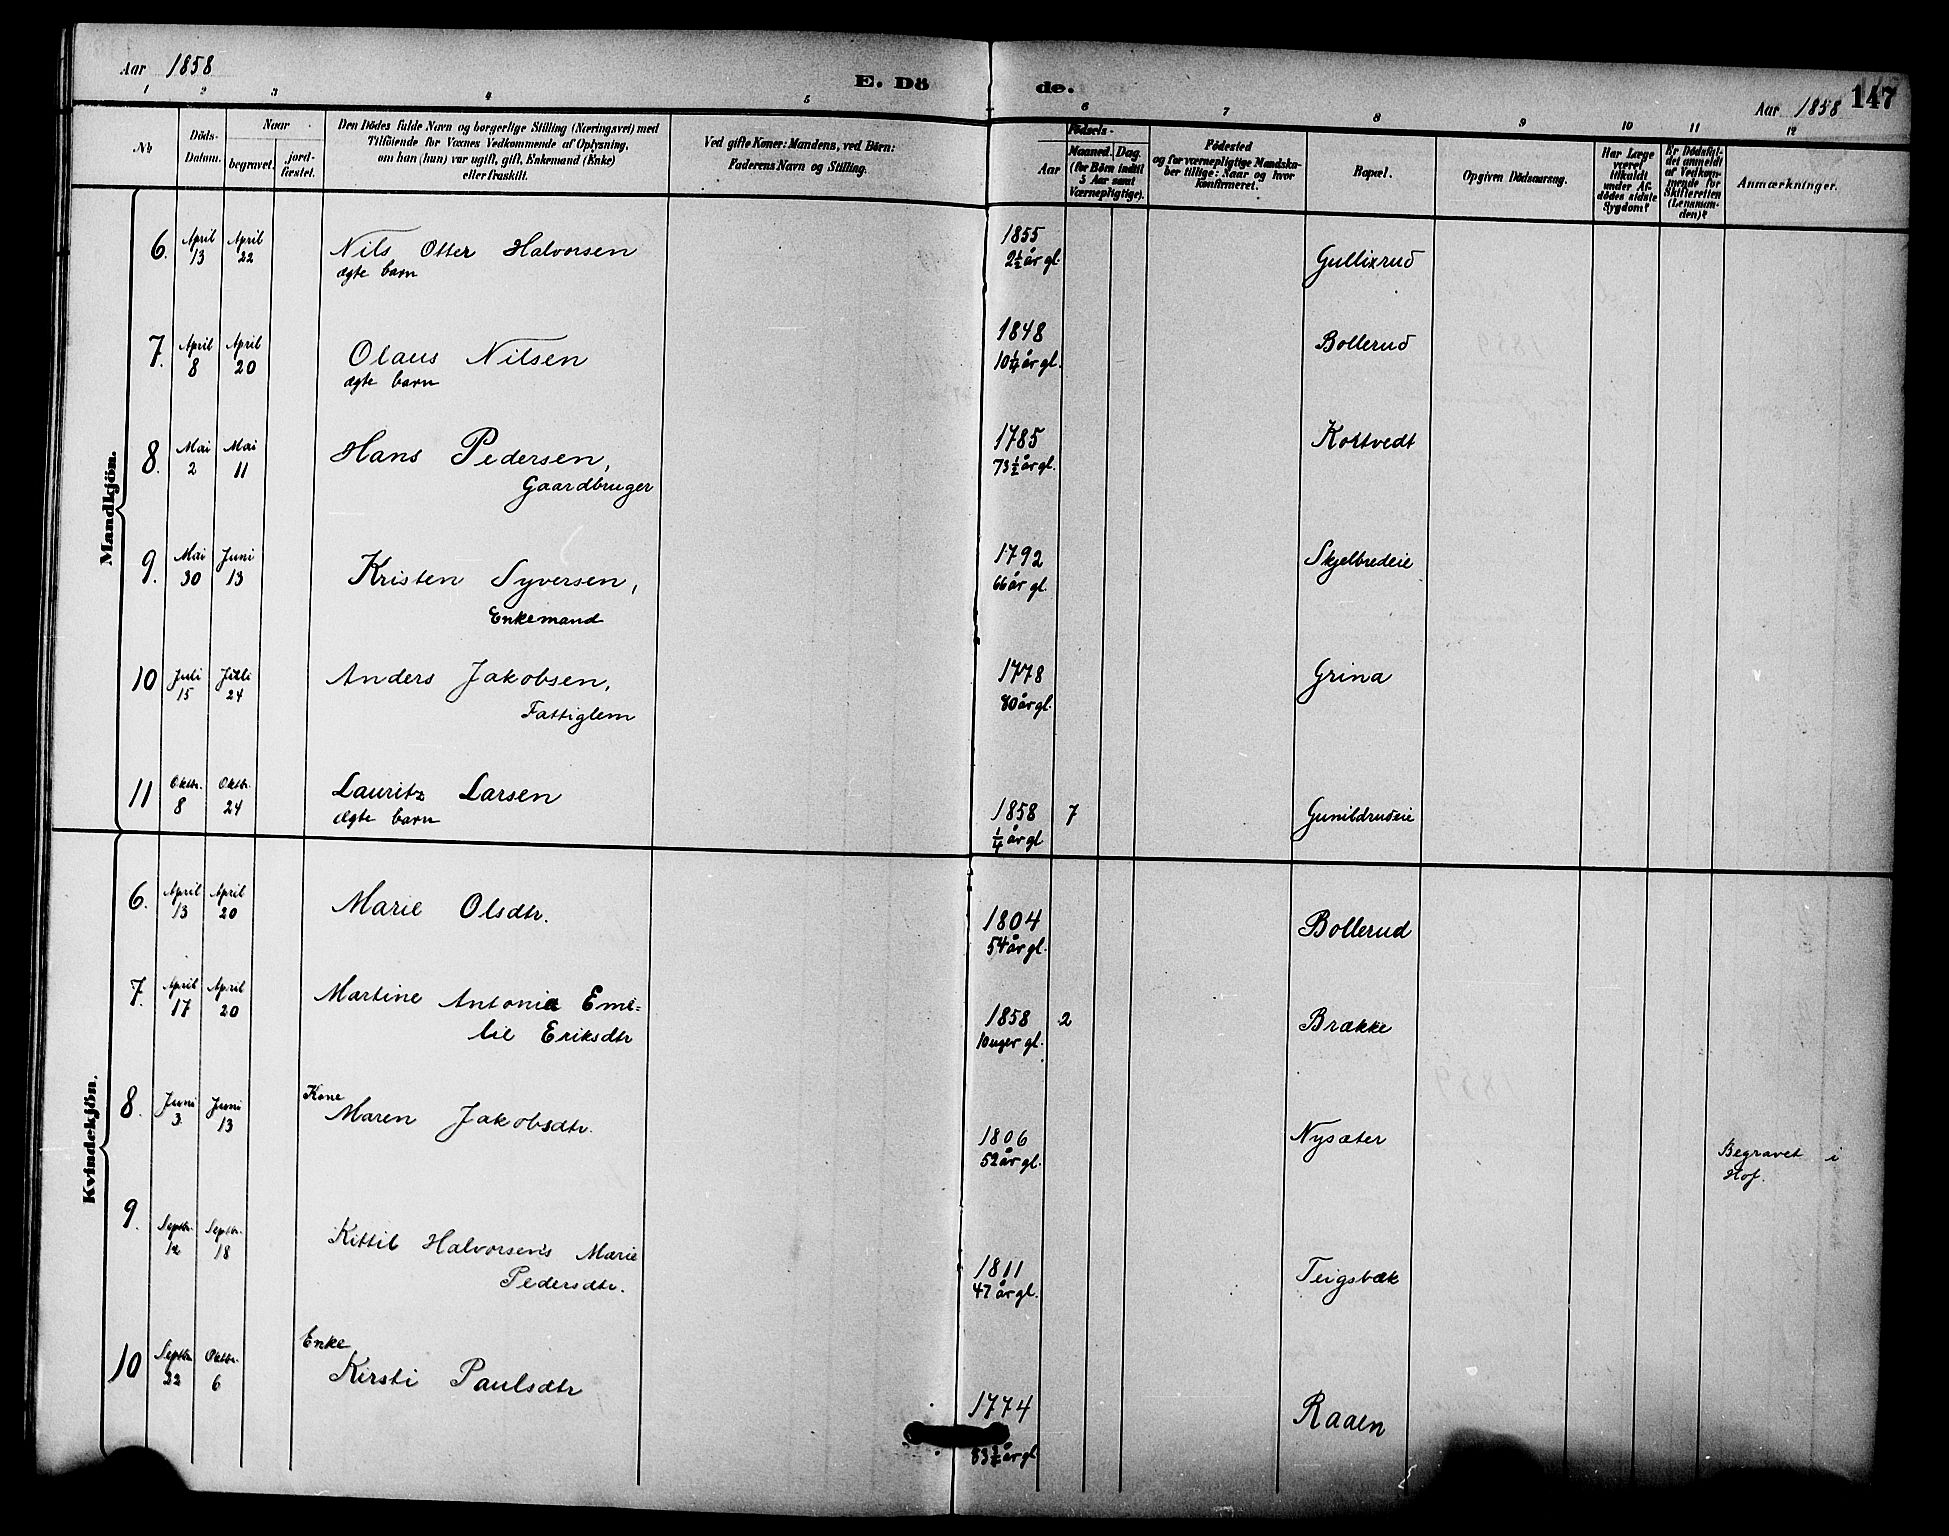 Aar 1858
E. Dö de.
Aar 1858 147
1 2 3 4 5 6 7 8 9 10 11 12
No
Döds-
Datum.
Naar
begravet.
jord-
fæstet.
Den Dödes fulde Navn og borgerlige Stilling (Næringsvei) med
Tilföiende for Voxnes Vedkommende af Oplysning,
om han (hun) var ugift, gift, Enkemand (Enke)
eller fraskilt.
Ved gifte Koner: Mandens, ved Börn:
Faderens Navn og Stilling.
Födsels-
Aar
Maaned. Dag.
(for Börn indtil
5 Aar samt
Værnepligtige).
Födested
og for værnepligtige Mandska-
ber tillige: Naar og hvor
konfirmeret.
Bopæl.
Opgiven Dödsaarsag.
Har Læge
været
tilkaldt
under Af-
dödes sidste
Sygdom?
Er Dödsfal-
det anmeldt
af Vedkom-
mende for
Skifteretten
(Lensman-
den)?
Anmærkninger.
Mandkjön.
6. April 13 April 22 Nils Otter Halvorsen 1855 Gullixrud
ægte barn 2½ år gl.
7. April 8 April 20 Olaus Nilsen 1848 Bollerud
ægte barn 10¼ år gl.
8. Mai 2 Mai 11 Hans Pedersen, 1785 Kottvedt
Gaardbruger 73½ år gl.
9. Mai 30 Juni 13 Kristen Syversen, 1792 Skjelbredeie
Enkemand 66 år gl.
10 Juli 15 Juli 24 Anders Jakobsen, 1778 Grina
Fattiglem 80 år gl.
11 Oktbr. 8 Oktbr. 24 Lauritz Larsen 1858 7 Gunildrudeie
ægte barn ¼ år gl
Kvindekjön.
6. April 13 April 20 Marie Olsdtr. 1804 Bollerud
54 år gl.
7. April 17 April 20 Martine Antonia Emi-
lie Eriksdtr 1858 2 Brække
10 uger gl.
8. Juni 3 Juni 13 Kone
Maren Jakobsdtr. 1806 Nysæter
52 år gl. Begravet i
Hof.
9. Septbr. 12 Septbr. 18 Kittil Halvorsens Marie
Pedersdtr. 1811 Teigsbæk
47 år gl.
10 Septbr 22 Oktbr. 6 Enke
Kirsti Paulsdtr 1774 Raaen
år gl